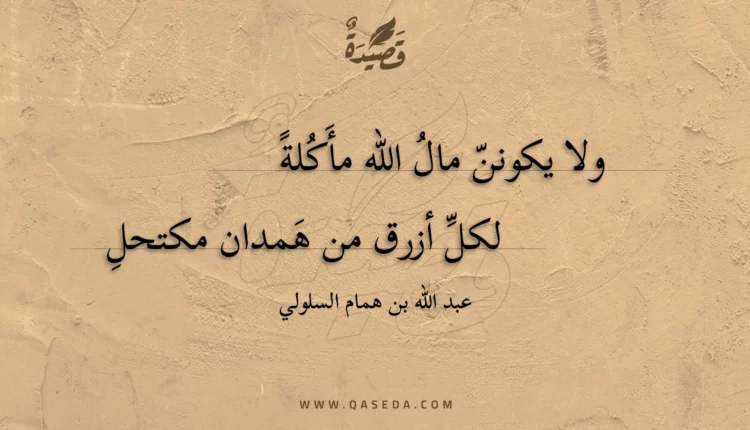 قَصِيدَةٌ
ولا يكوننّ مالُ الله مأَكُلةً
لكلِّ أزرق من هَمدان مكتحلِ
عبد الله بن همام السلولي
WWW.QASEDA.COM